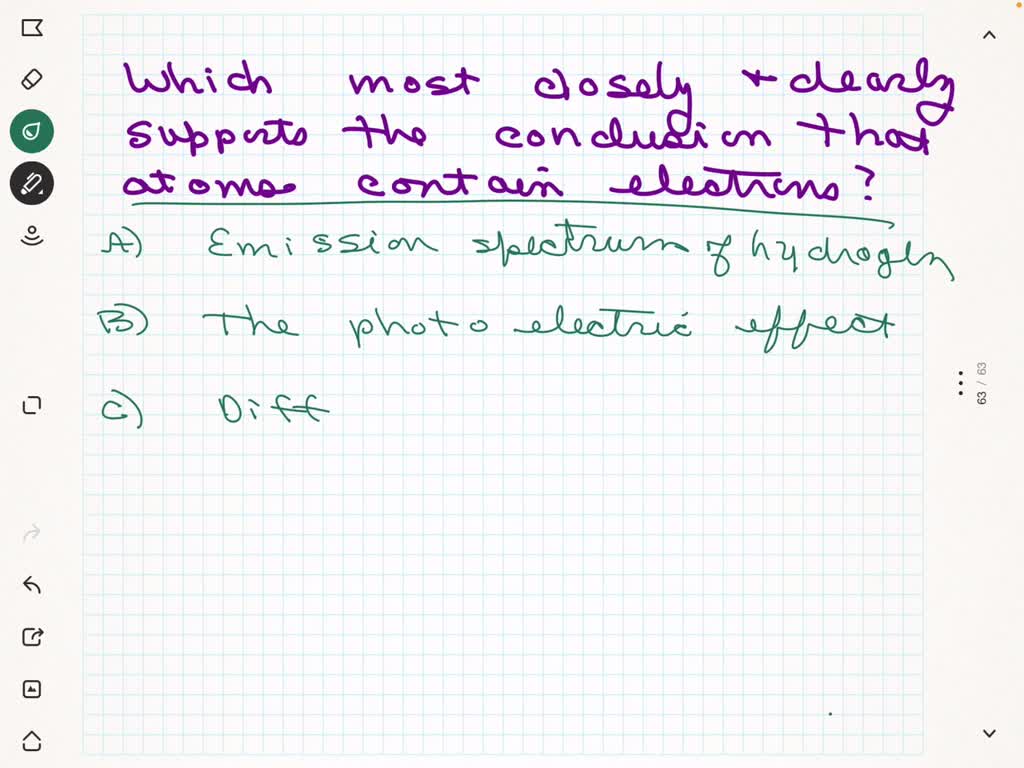 Which most closely + clearly
supports the conclusion that
atoms contain electrons?
A) Emission spectrum of hydrogen
B) The photo electric effect
C) Diff
63 / 63